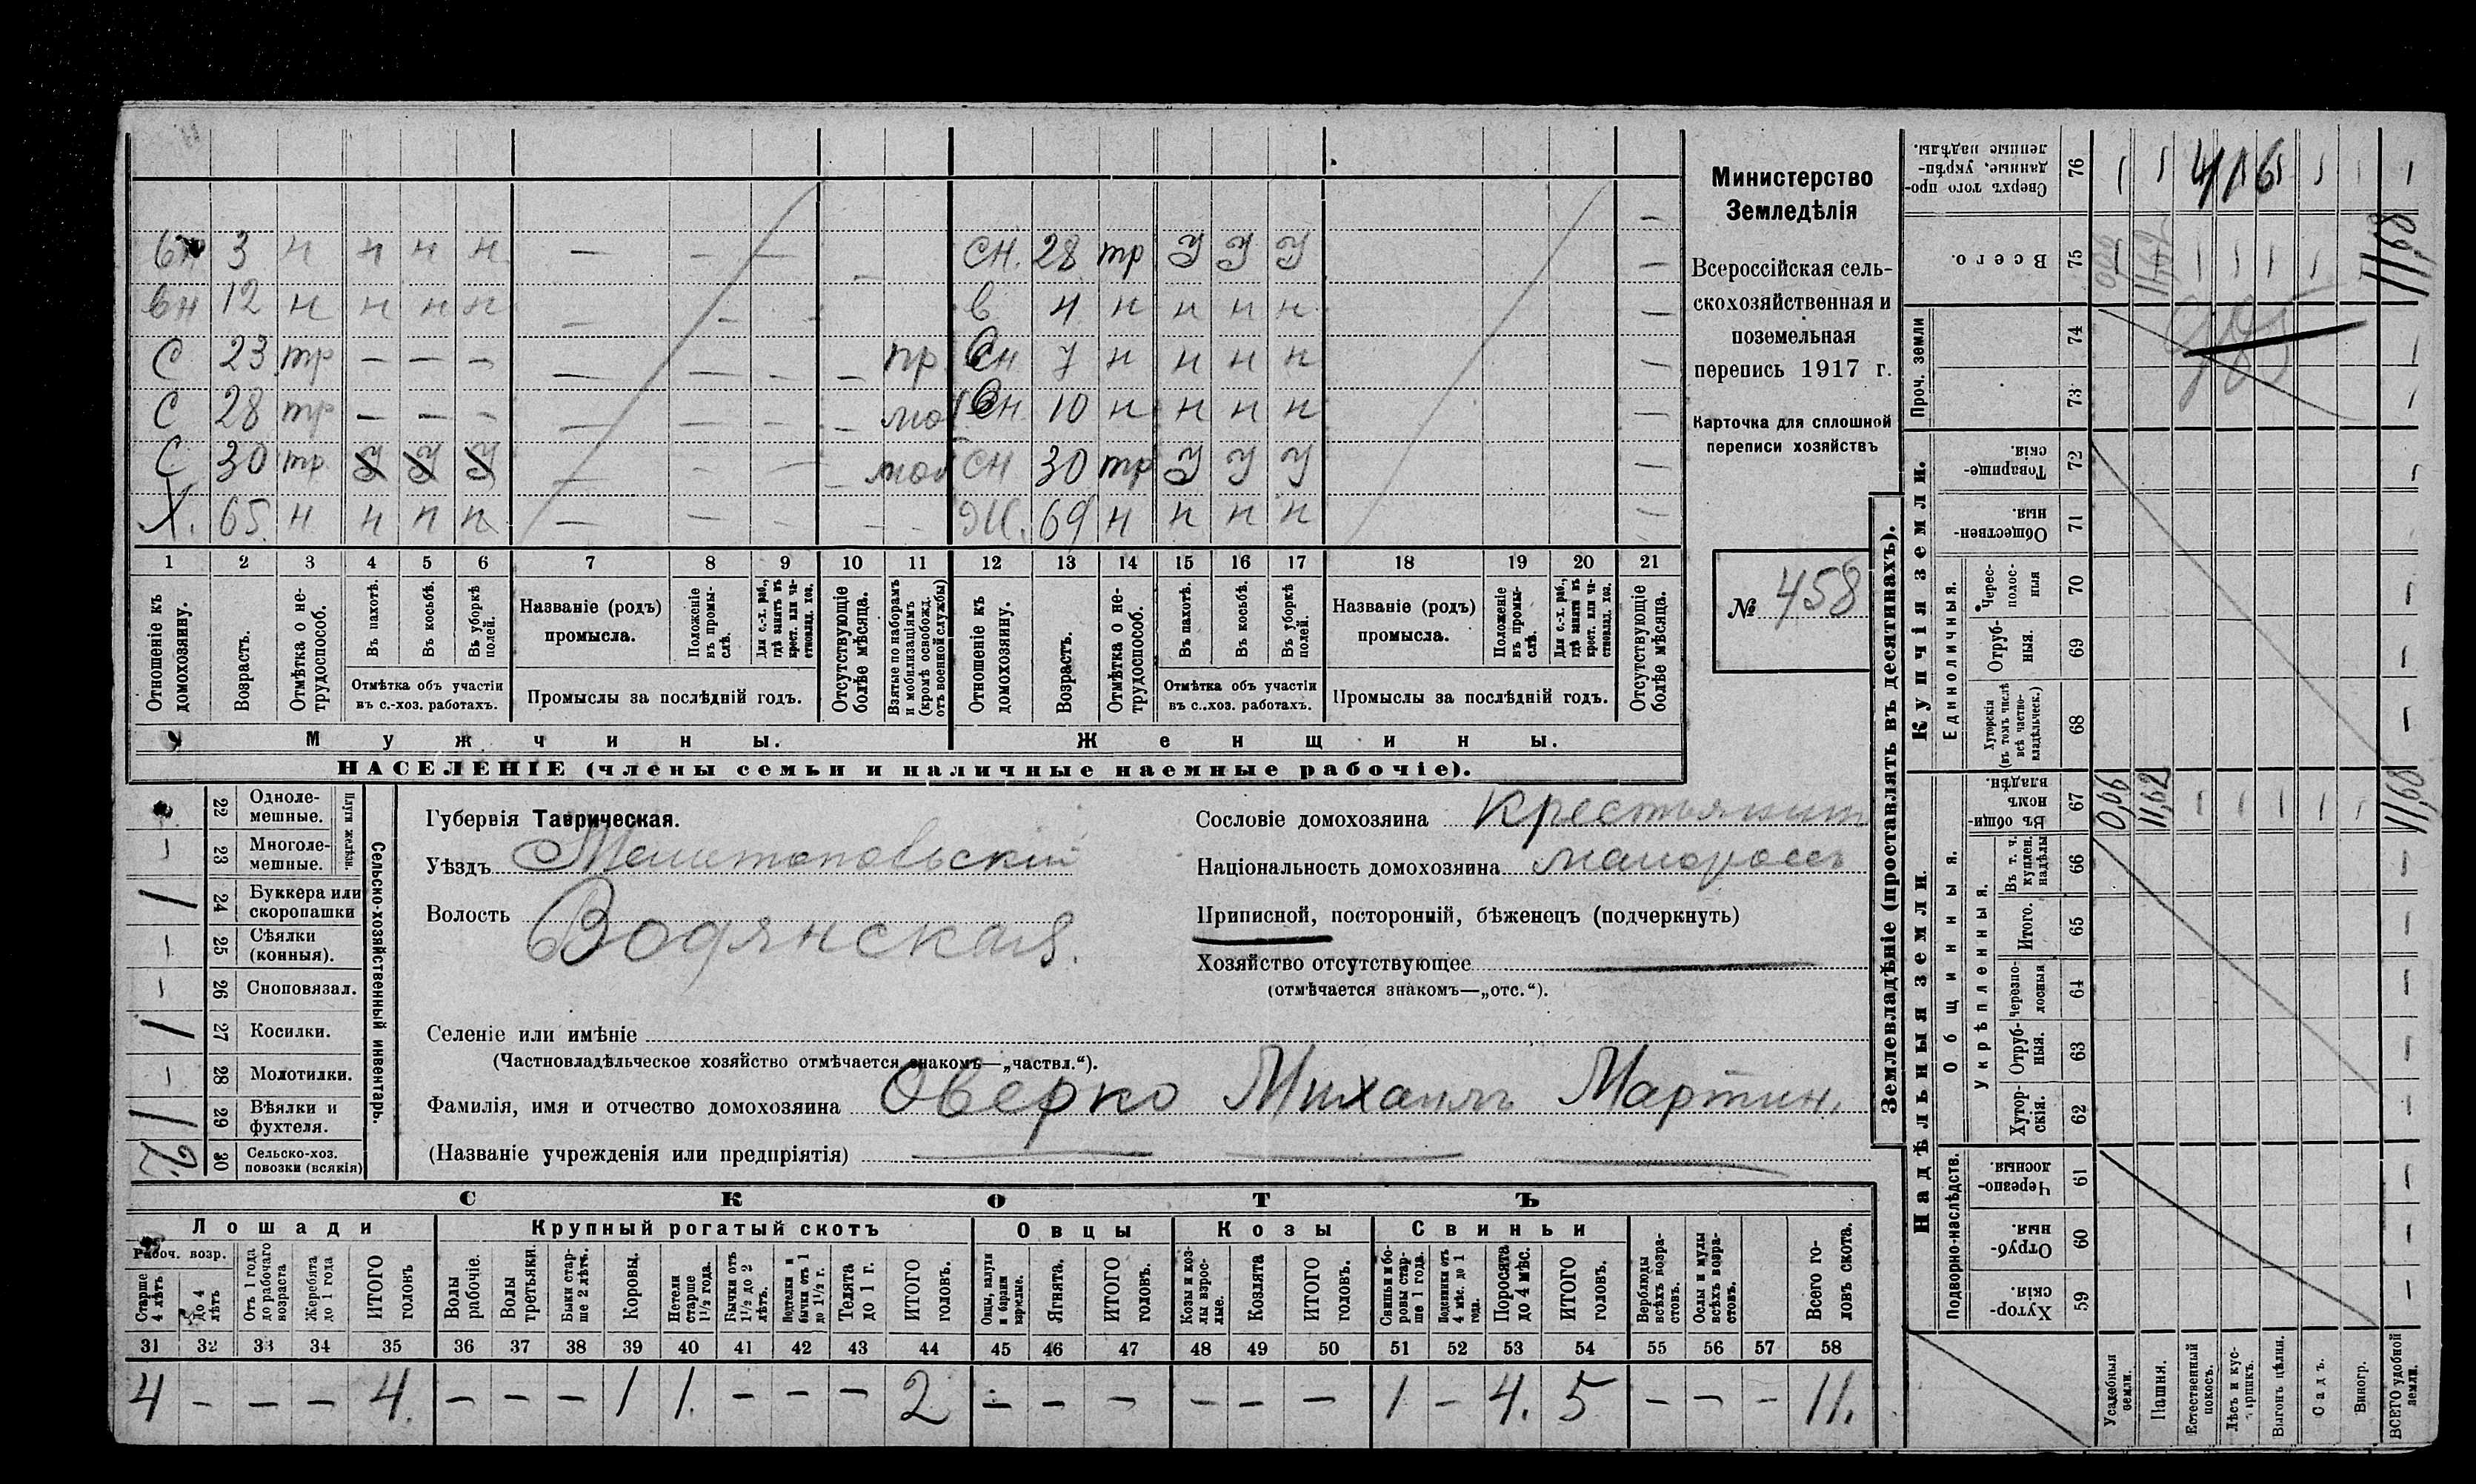 вн 3 н н н н — — — — сн. 28 тр У У У —
вн 12 н н н н — — — в 4 н н н н —
С 23 тр — — — — — — — пр. сн 7 н н н н —
С 28 тр — — — — — — — моб сн 10 н н н н —
С 30 тр У У У — — — — моб сн 30 тр У У У —
Х. 65 н н н н — — — — — Ж. 69 н н н н —
1 2 3 4 5 6 7 8 9 10 11 12 13 14 15 16 17 18 19 20 21
Отношеніе къ домохозяину.
Возрастъ.
Отмѣтка о не-трудоспособ.
Въ пахотѣ.
Въ косьбѣ.
Въ уборкѣ полей.
Отмѣтка объ участіи
въ с.-хоз. работахъ.
Названіе (родъ)
промысла.
Положеніе въ промы-слѣ.
Для с.-х. раб., гдѣ занятъ въ крест. или ча-стновлад. хоз.
Промыслы за послѣдній годъ.
Отсутствующіе болѣе мѣсяца.
Взятые по наборамъ и мобилизаціямъ (кромѣ освобожд. отъ военной службы)
Отношеніе къ домохозяину.
Возрастъ.
Отмѣтка о не-трудоспособ.
Въ пахотѣ.
Въ косьбѣ.
Въ уборкѣ полей.
Отмѣтка объ участіи
въ с.-хоз. работахъ.
Названіе (родъ)
промысла.
Положеніе въ промы-слѣ.
Для с.-х. раб., гдѣ занята въ крест. или ча-стновлад. хоз.
Промыслы за послѣдній годъ.
Отсутствующіе болѣе мѣсяца.
Мужчины. Женщины.
НАСЕЛЕНІЕ (члены семьи и наличные наемные рабочіе).
Министерство
Земледѣлія
Всероссійская сель-
скохозяйственная и
поземельная
перепись 1917 г.
Карточка для сплошной
переписи хозяйствъ
№ 458
Сельско-хозяйственный инвентарь.
Плуги желѣзн.
22 Одноле-мешные.
— 23 Многоле-мешные.
1 24 Буккера или скоропашки
— 25 Сѣялки (конныя).
— 26 Сноповязал.
1 27 Косилки.
— 28 Молотилки.
1 29 Вѣялки и фухтеля.
2 30 Сельско-хоз. повозки (всякія)
Губернія Таврическая.
Уѣздъ Мелитопольскій
Волость Водянская.
Сословіе домохозяина Крестьянин
Національность домохозяина малоросъ
Приписной, посторонній, бѣженецъ (подчеркнуть)
Хозяйство отсутствующее —
(отмѣчается знакомъ—„отс.“).
Селеніе или имѣніе
(Частновладѣльческое хозяйство отмѣчается знакомъ—„частвл.“).
Фамилія, имя и отчество домохозяина Оверко Михаилъ Мартин.
(Названіе учрежденія или предпріятія)
СКОТЪ
Лошади Крупный рогатый скотъ Овцы Козы Свиньи
Рабоч. возр.
Старше 4 лѣтъ
До 4 лѣтъ
Отъ 1 года до рабочаго возраста
Жеребята до 1 года
ИТОГО головъ
Волы рабочіе.
Волы третьяки.
Быки стар-ше 2 лѣтъ.
Коровы.
Нетели старше 1½ года.
Бычки отъ 1½ до 2 лѣтъ.
Подтелки и бычки отъ 1 до 1½ г.
Телята до 1 г.
ИТОГО головъ.
Овцы, валухи и бараны взрослые.
Ягнята.
ИТОГО головъ.
Козы и коз-лы взрос-лые.
Козлята
ИТОГО головъ.
Свиньи и бо-ровы стар-ше 1 года.
Подсвинки отъ 4 мѣс. до 1 года.
Поросята до 4 мѣс.
ИТОГО головъ.
Верблюды всѣхъ возра-стовъ.
Ослы и мулы всѣхъ возра-стовъ.
Всего го-ловъ скота.
31 32 33 34 35 36 37 38 39 40 41 42 43 44 45 46 47 48 49 50 51 52 53 54 55 56 57 58
4 — — — 4. — — — 1 1. — — — 2 — — — — — — 1 — 4. 5 — — — 11.
Землевладѣніе (проставлять въ десятинахъ).
Надѣльныя земли.
Купчія земли.
Проч. земли
Подворно-наслѣдств.
Общинныя.
Укрѣпленныя.
Единоличныя.
76 Сверхъ того про-данные, укрѣп-ленные надѣлы.
75 Всего. 0,06 11,62 — — — — — 11,68
74
73
72 Товарище-скія.
71 Обществен-ныя.
70 Черес-полос-ныя
69 Отруб-ныя.
68 Хуторскія (въ томъ числѣ всѣ частно-владѣльческ.)
67 Въ общин-номъ владѣн. 0,06 11,62 — — — — —
66 Въ т. ч. куплен. надѣлы
65 Итого.
64 Черезпо-лосныя
63 Отруб-ныя.
62 Хутор-скія.
61 Черезпо-лосныя.
60 Отруб-ныя.
59 Хутор-скія.
Усадебныя земли.
Пашня.
Естественный покосъ.
Лѣсъ и кус-тарникъ.
Выгонъ цѣлин.
Садъ.
Виногр.
ВСЕГО удобной земли.